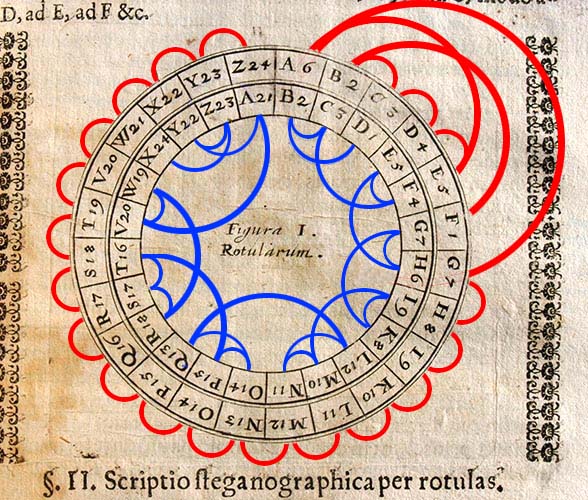 D, ad E, ad F &c.
A 6 B 2 C 3 D 4 E 5 F 1 G 7 H 8 I 9 K 10 L 11 M 12 N 13 O 14 P 15 Q 6 R 17 S 18 T 19 V 20 W 21 X 22 Y 23 Z 24
A 21 B 2 C 3 D 1 E 5 F 4 G 7 H 6 I 9 K 8 L 12 M 10 N 11 O 14 P 15 Q 13 R 18 S 17 T 16 V 20 W 19 X 24 Y 22 Z 23
Figura I.
Rotularum.
§. II. Scriptio steganographica per rotulas.